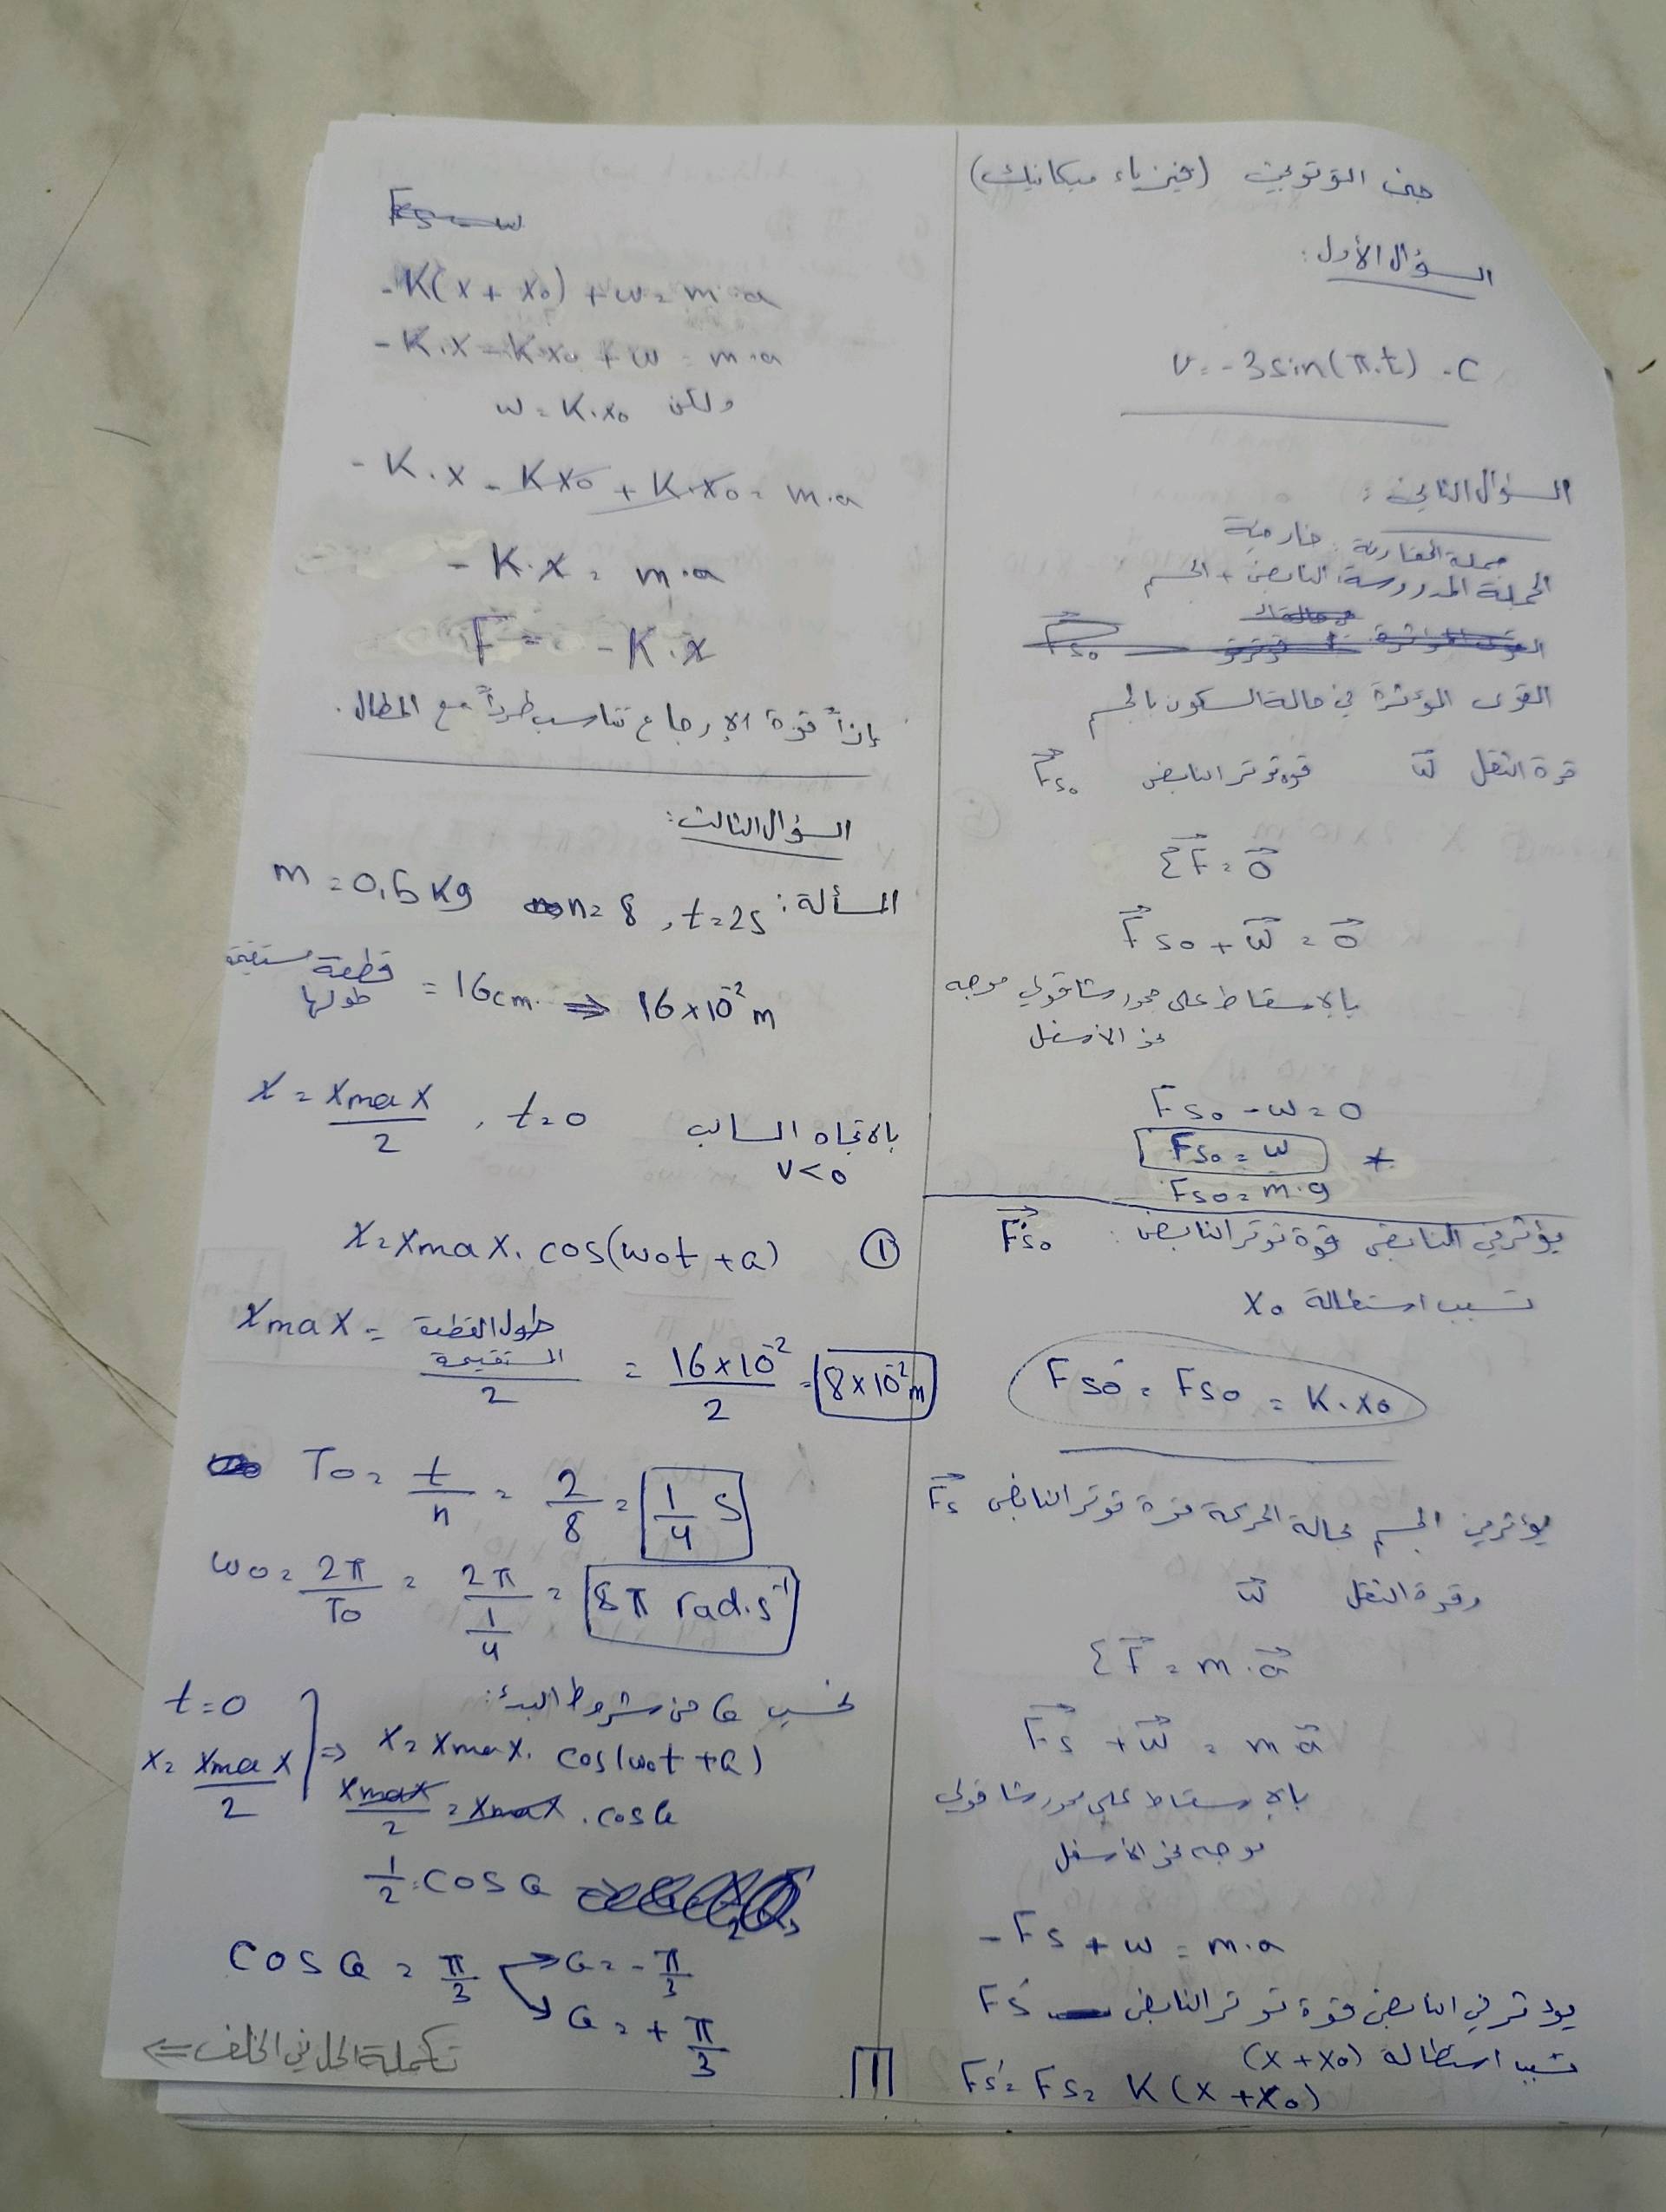 جين التوتوبي (فيزياء ميكانيك)
السؤال الأول:
v = -3sin(π.t) -C
السؤال الثاني:
جملة المقارنة: خارجية
الجملة المدروسة: النابض + الجسم
القوى المؤثرة في حالة السكون بالجسم
قوة الثقل w قوة توتر النابض Fs₀
ΣF = 0
Fs₀ + w = 0
بالإسقاط على محور شاقولي موجه
نحو الأسفل
Fs₀ - w = 0
Fs₀ = w *
Fs₀ = m.g
يؤثر في النابض قوة توتر النابض: F's₀
تسبب استطالة x₀
Fs₀' = Fs₀ = K.x₀
يؤثر في الجسم بحالة الحركة قوة توتر النابض Fs
وقوة الثقل w
ΣF = m.a
Fs + w = m a
بالإسقاط على محور شاقولي
موجه نحو الأسفل
-Fs + w = m.a
يؤثر في النابض قوة توتر النابض Fs'
تسبب استطالة (x + x₀)
Fs' = Fs = K(x + x₀)
-K(x + x₀) + w = m.a
-K.x - Kx₀ + w = m.a
ولكن w = K.x₀
-K.x - Kx₀ + K.x₀ = m.a
-K.x = m.a
F = -K.x
إذاً قوة الإرجاع تتناسب طرداً مع المطال.
السؤال الثالث:
المسألة: m = 0,5 Kg n = 8 , t = 2s
قطعة مستقيمة طولها = 16cm. ⇒ 16×10⁻² m
x = xmax/2 , t = 0 بالاتجاه السالب
v < 0
x = xmax. cos(ω₀t + φ) ①
xmax = طول القطعة المستقيمة/2 = 16×10⁻²/2 = 8×10⁻² m
T₀ = t/n = 2/8 = 1/4 s
ω₀ = 2π/T₀ = 2π/(1/4) = 8π rad.s⁻¹
نحسب φ من شروط البدء:
t = 0
x = xmax/2 ⇒ x = xmax. cos(ω₀t + φ)
xmax/2 = xmax . cos φ
1/2 = cos φ
cos φ = π/3 → φ = -π/3
↘ φ = + π/3
تكملة الحل في الخلف ⇐
1